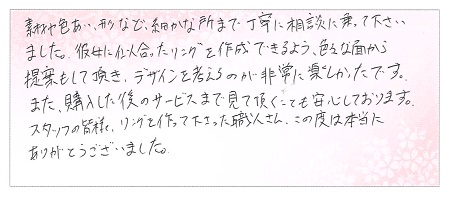 素材や色あい、形など、細かな所まで丁寧に相談に乗って下さい
ました。彼女に似合ったリングを作成できるよう、色々な面から
提案もして頂き、デザインを考えるのが非常に楽しかったです。
また、購入した後のサービスまで見て頂くことも安心しております。
スタッフの皆様、リングを作って下さった職人さん、この度は本当に
ありがとうございました。